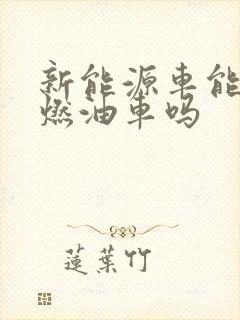 新能源车能
燃油车吗
莲葉竹